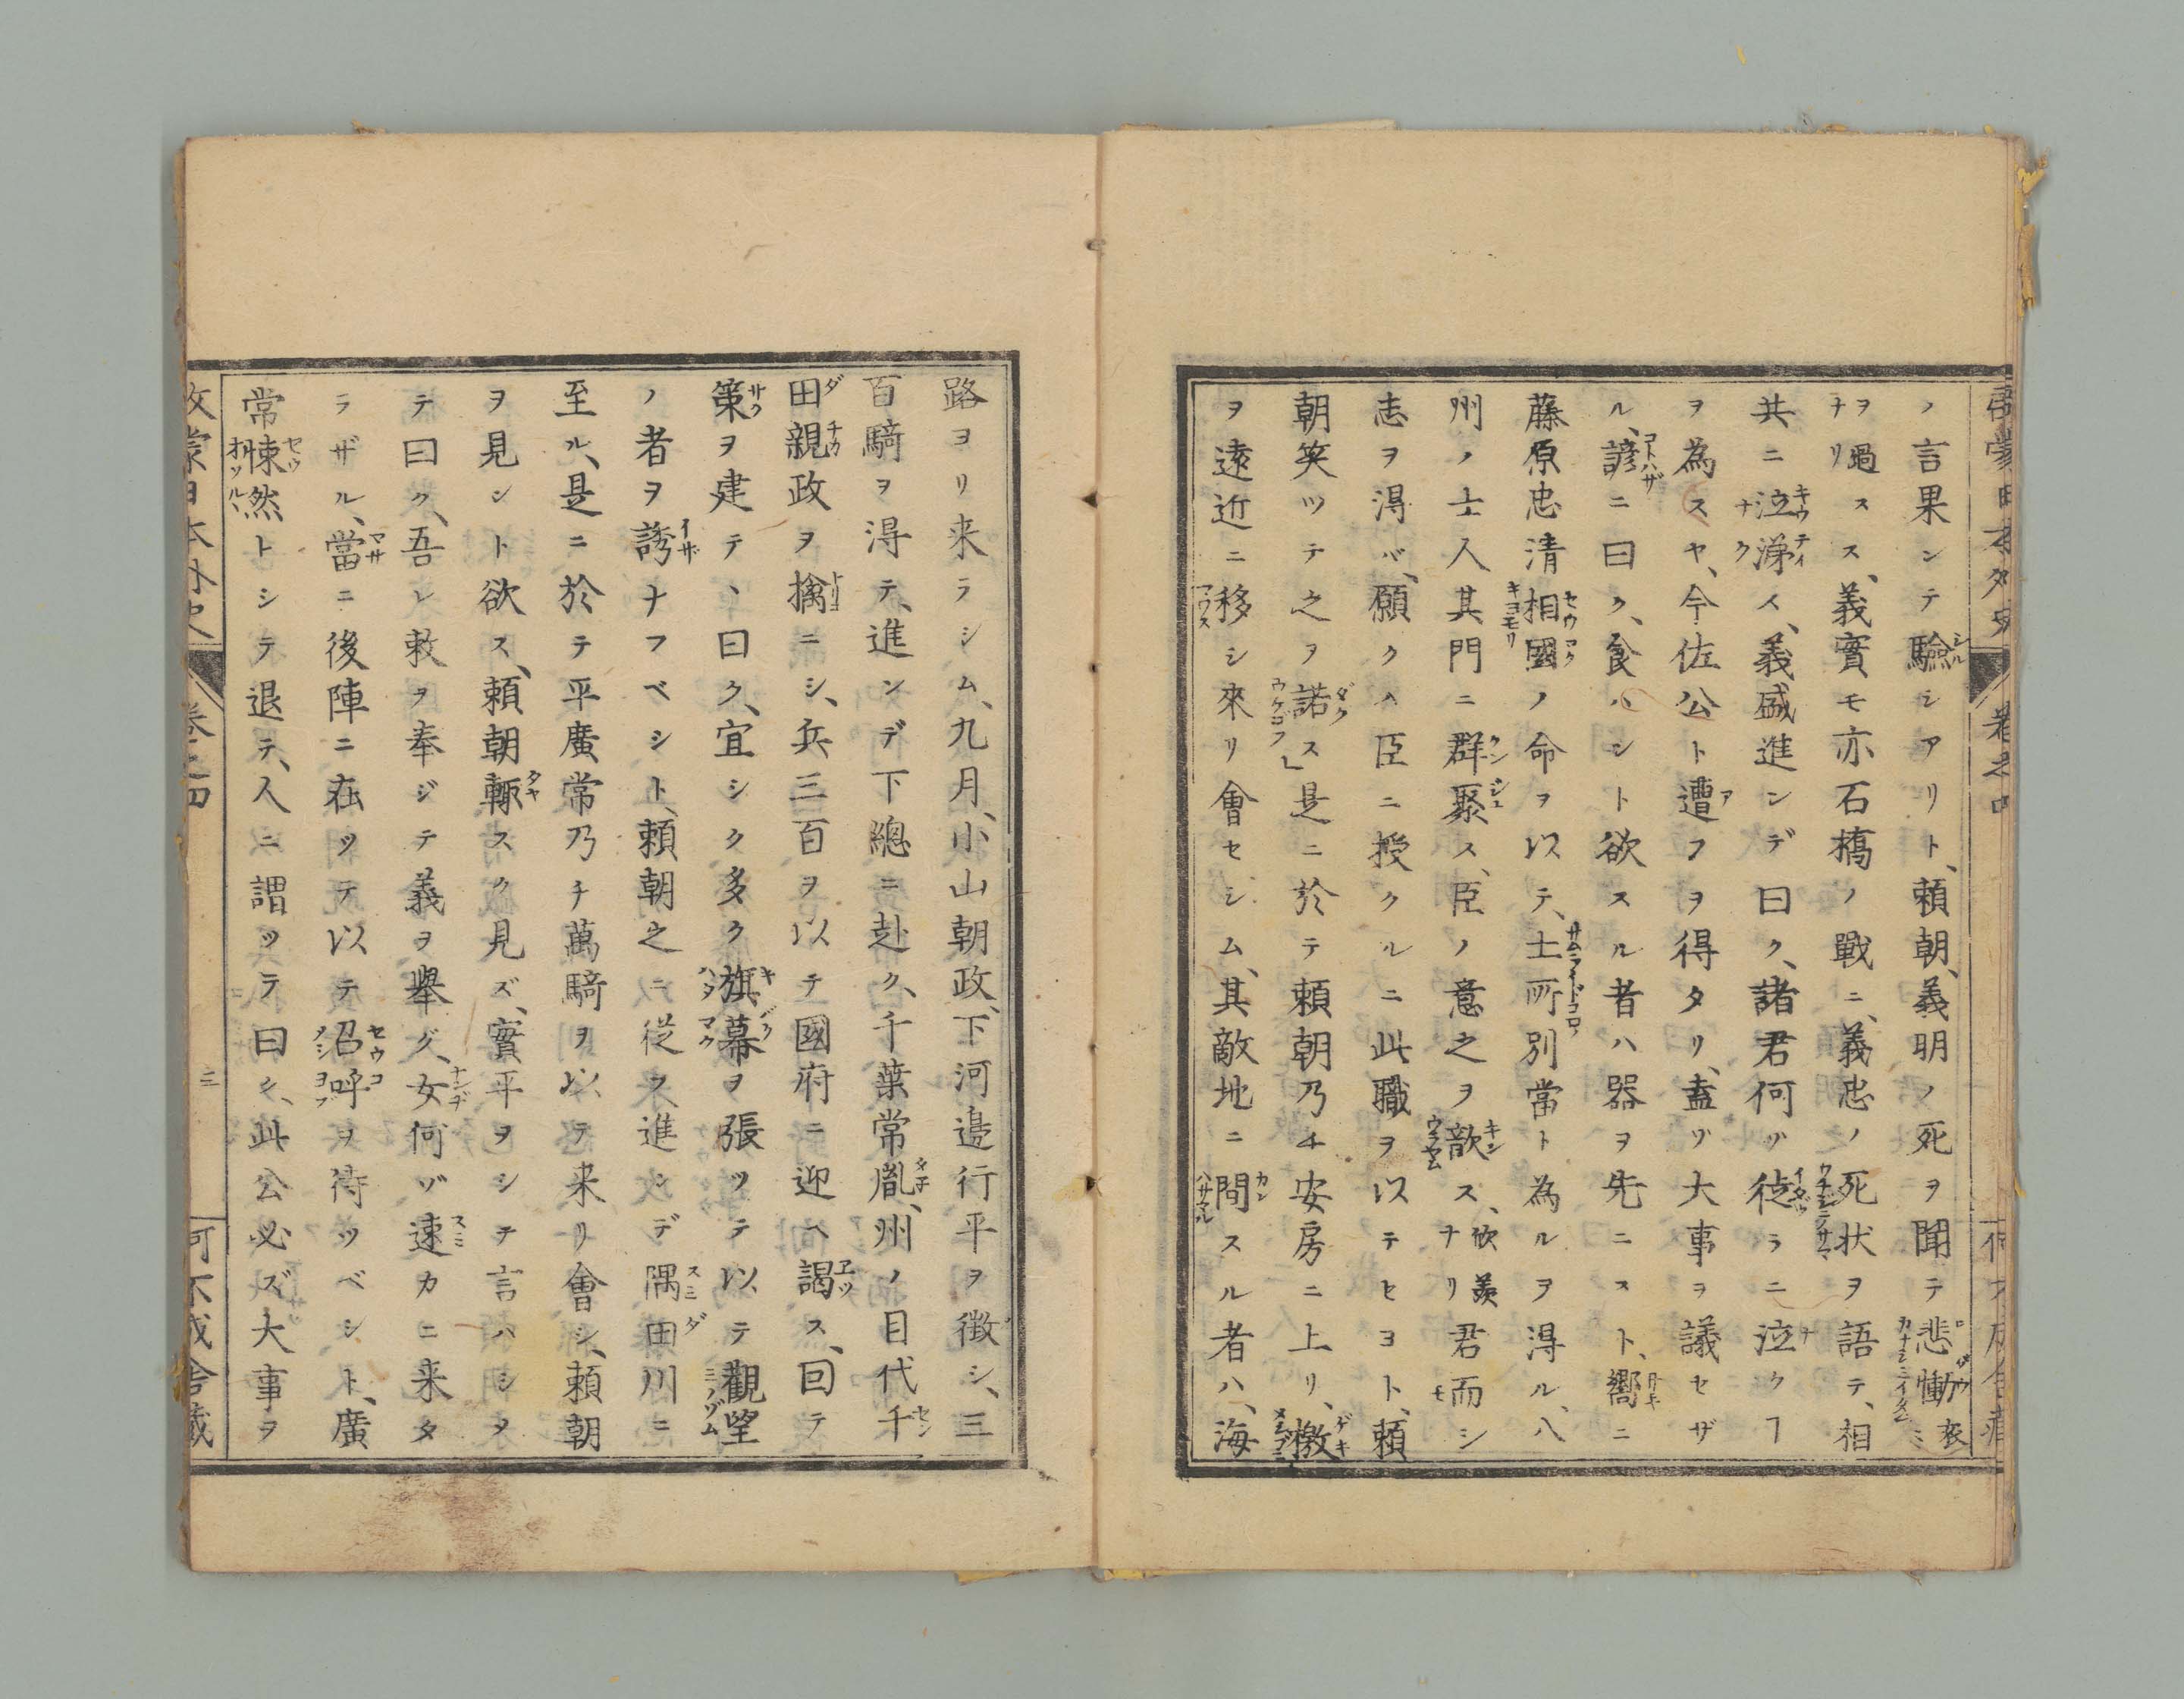 ノ言果ンテ驗シアリト、頼朝、義明ノ死ヲ聞テ悲慟哀ミ
ヲ過スナリス、義實モ亦石橋ノ戰ニ、義忠ノ死状ヲ語テ、相
共ニ泣涕ス、義盛進ンデ曰ク、諸君何ゾ徒ラニ泣クヿ
ヲ為スヤ、今佐公ト遭フヲ得タリ、盍ゾ大事ヲ議セザ
ル、諺ニ曰ク、食ハント欲スル者ハ器ヲ先ニスト、嚮ニ
藤原忠清相國ノ命ヲ以テ、士所別當ト為ルヲ得ル、八
州ノ士人其門ニ群聚ス、臣ノ意之ヲ歆ス、欣羨ナリ君而シモ
志ヲ得バ、願クハ臣ニ授クルニ此職ヲ以テセヨト、頼
朝笑ツテ之ヲ諾ス」是ニ於テ頼朝乃チ安房ニ上リ、檄
ヲ遠近ニ移シ來リ會セシム、其敵地ニ間スル者ハ、海
路ヨリ来ラシム、九月、小山朝政、下河邉行平ヲ徴シ、三
百騎ヲ得テ、進ンデ下總ニ赴ク、千葉常胤、州ノ目代千
田親政ヲ擒ニシ、兵三百ヲ以テ國府ニ迎ヘ謁ス、回テ
策ヲ建テ、曰ク、宜シク多ク旗幕ヲ張ツテ以テ觀望
ノ者ヲ誘ナフベシト、頼朝之ニ従フ進ンデ隅田川ニ
至ル、是ニ於テ平廣常乃チ萬騎ヲ以テ来リ會シ、頼朝
ヲ見ント欲ス、頼朝輙スク見ズ、實平ヲシテ言ハシタ
テ曰ク、吾レ敕ヲ奉ジテ義ヲ舉グ、女何ゾ速カニ来タ
ラザル、當ニ後陣ニ在ツテ以テ沼呼ヲ待ツベシト、廣
常悚然トシテ退テ、人ニ謂ツテ曰ク、此公必ズ大事ヲ
卷之四
三
何不成舎藏